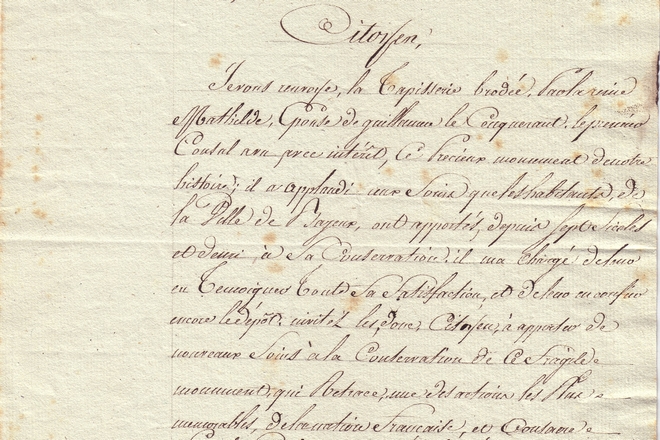 Citoyen,
Je vous renvoye, la Tapisserie brodée, Par la reine
Mathilde, Epouse de guillaume le Conquerant. le premier
Consul a vu avec intérêt, ce Précieux monument de notre
histoire; il a applaudi aux Soins que les habitants, de
la Ville de Bayeux, ont apportés, depuis Sept Siècles
et demi, à Sa Conservation. il m'a chargé de leur
en Temoigner Toute Sa Satisfaction, et de leur en confier
encore le dépôt. invitez les, donc, Citoyen, à apporter de
nouveaux Soins à la Conservation de ce Fragile
monument, qui Retrace, une des actions les Plus
memorables, de la nation Française, et